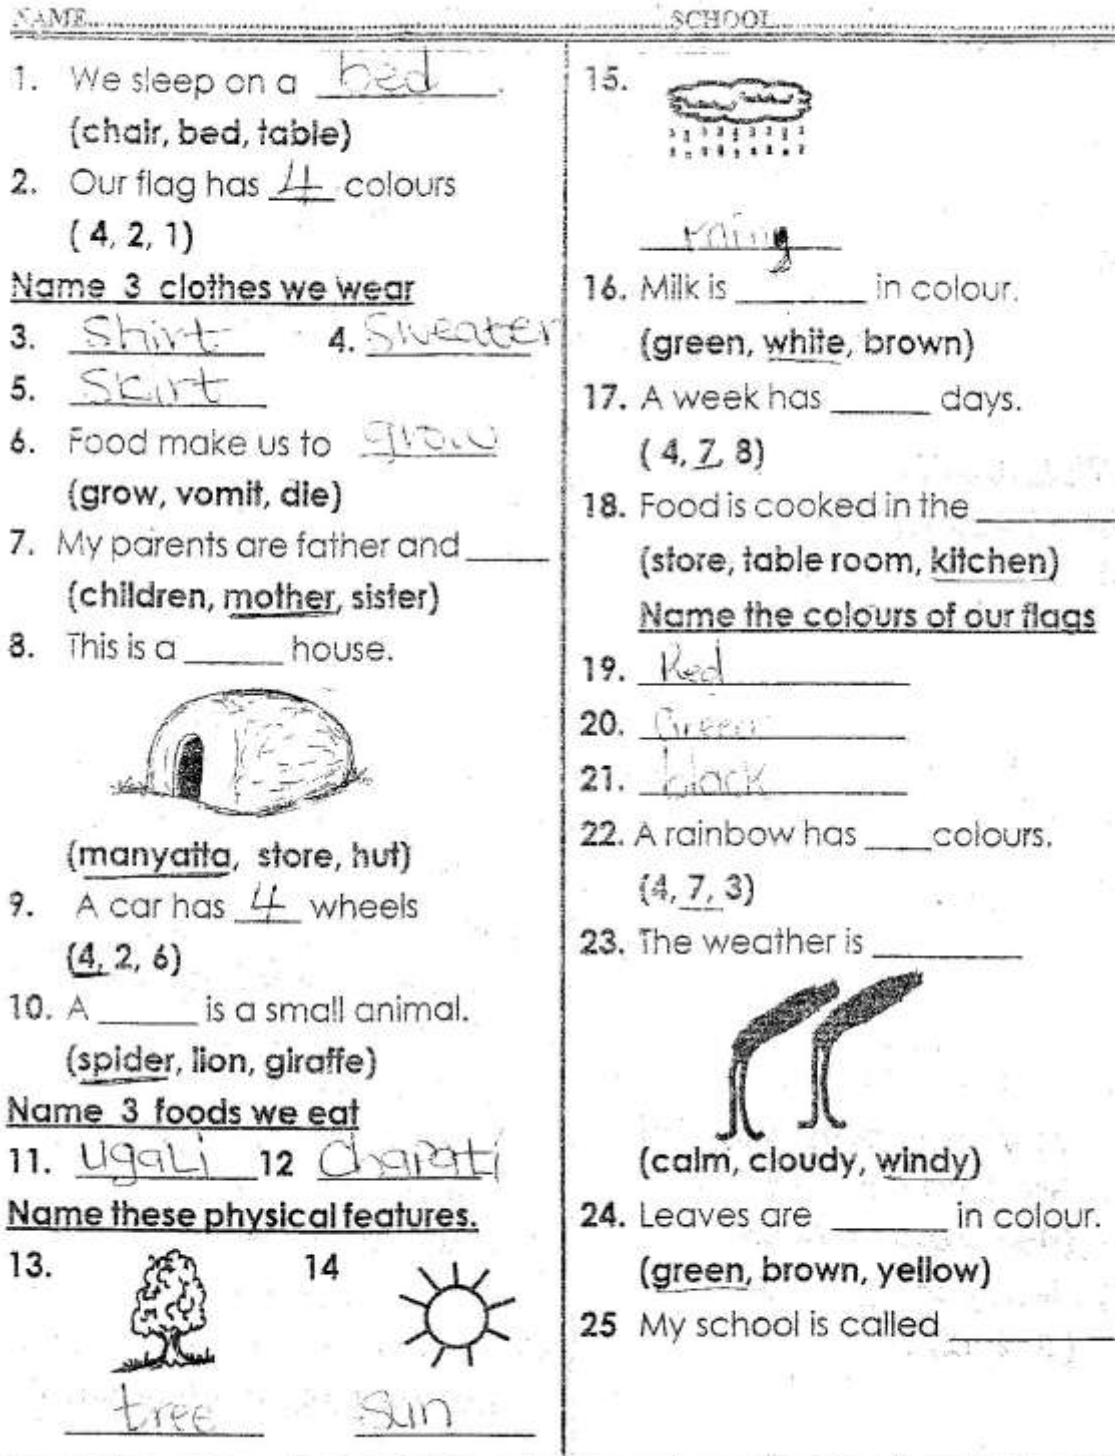 NAME SCHOOL
1. We sleep on a bed.
(chair, bed, table)
2. Our flag has 4 colours
(4, 2, 1)
Name 3 clothes we wear
3. Shirt 4. Sweater
5. Skirt
6. Food make us to grow
(grow, vomit, die)
7. My parents are father and
(children, mother, sister)
8. This is a house.
(manyatta, store, hut)
9. A car has 4 wheels
(4, 2, 6)
10. A is a small animal.
(spider, lion, giraffe)
Name 3 foods we eat
11. Ugali 12 Chapati
Name these physical features.
13. 14
tree sun
15.
16. Milk is in colour.
(green, white, brown)
17. A week has days.
(4, 7, 8)
18. Food is cooked in the
(store, table room, kitchen)
Name the colours of our flags
19. Red
20. Green
21. black
22. A rainbow has colours.
(4, 7, 3)
23. The weather is
(calm, cloudy, windy)
24. Leaves are in colour.
(green, brown, yellow)
25 My school is called